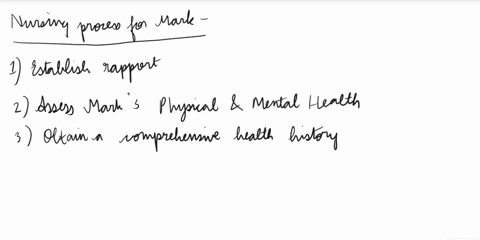 Nursing process for Mark -
1) Establish rapport
2) Assess Mark's Physical & Mental Health
3) Obtain a comprehensive health history